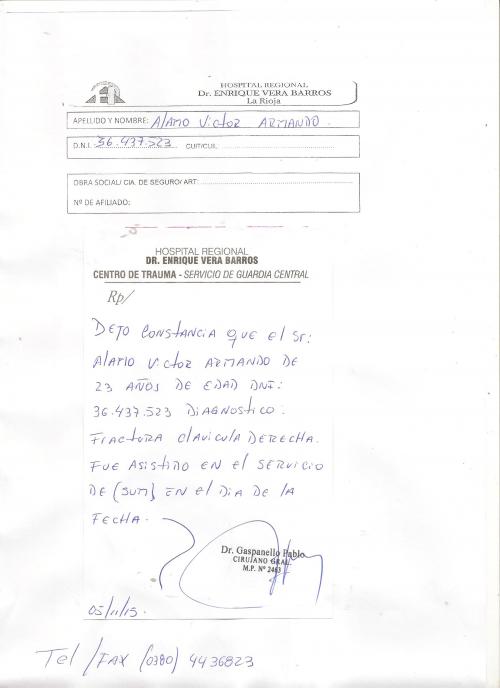 HOSPITAL REGIONAL
Dr. ENRIQUE VERA BARROS
La Rioja
APELLIDO Y NOMBRE: Alamo Victor ARMANDO.
D.N.I.: 36.437.523 CUIT/CUIL:
OBRA SOCIAL/ CIA. DE SEGURO/ ART:
Nº DE AFILIADO:
HOSPITAL REGIONAL
DR. ENRIQUE VERA BARROS
CENTRO DE TRAUMA - SERVICIO DE GUARDIA CENTRAL
Rp/
DEJO CONSTANCIA QUE el Sr:
Alamo Victor ARMANDO DE
23 AÑOS DE EDAD DNI:
36.437.523 DIAGNOSTICO:
FRACTURA CLAVICULA DERECHA.
FUE ASISTIDO EN el SERVICIO
DE (SUM) EN el DIA DE LA
FECHA.
Dr. Gaspanello Pablo
CIRUJANO GRAL.
M.P. Nº 2463
05/11/15.
Tel /FAX (0380) 4436823